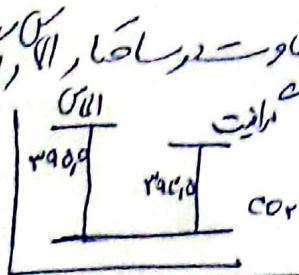 تفاوت در ساختار الماس
الماس گرافیت
۳۹۵٫۴ ۳۹۳٫۵
CO۲